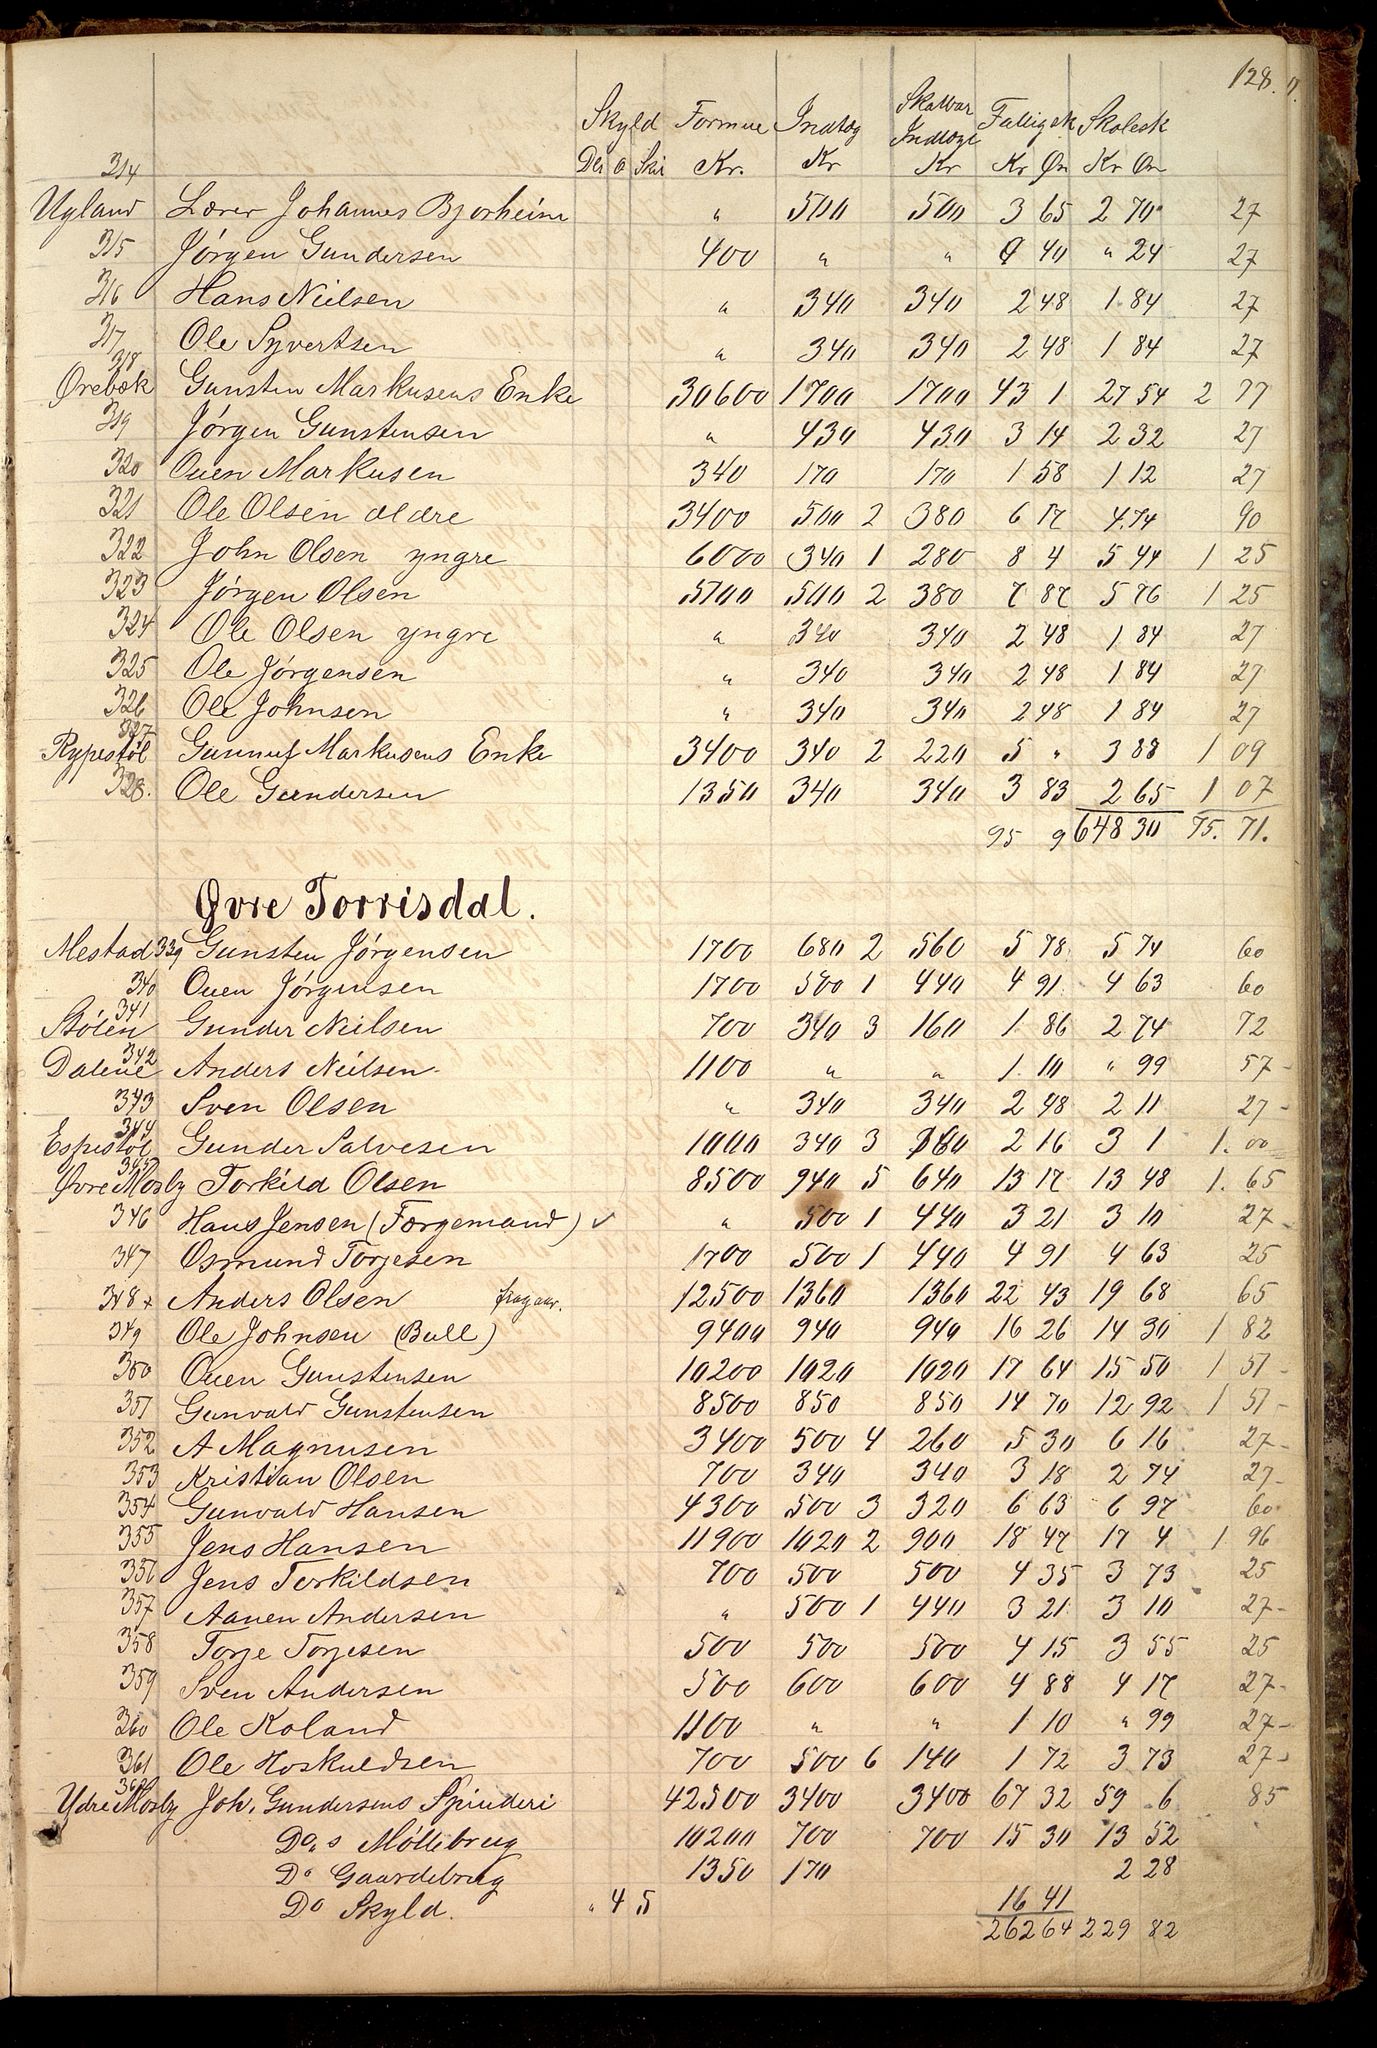 128.
Skyld Formue Indtæg Skatbar Indtægt Fattigsk Skolesk
Dlr o Skil Kr. Kr Kr Kr Ør Kr Ør
314
Ugland Lærer Johannes Bjorheim " 500 500 3 65 2 70 27
315 Jörgen Gundersen 400 " " " 40 " 24 27
316 Hans Nielsen " 340 340 2 48 1 84 27
317 Ole Syvertsen " 340 340 2 48 1 84 27
318
Ørebæk Gunsten Markusens Enke 30600 1700 1700 43 1 27 54 2 77
319 Jörgen Gunstensen " 430 430 3 14 2 32 27
320 Ouen Markusen 340 170 170 1 58 1 12 27
321 Ole Olsen ældre 3400 500 2 380 6 17 4.74 90
322 John Olsen yngre 6000 340 1 280 8 4 5 44 1 25
323 Jörgen Olsen 5700 500 2 380 7 87 5 76 1 25
324 Ole Olsen yngre " 340 340 2 48 1 84 27
325 Ole Jörgensen " 340 340 2 48 1 84 27
326 Ole Johnsen " 340 340 2 48 1 84 27
327
Rypestøl Gunnuf Markusens Enke 3400 340 2 220 5 " 3 88 1 09
328. Ole Gundersen 1350 340 340 3 83 2 65 1 07
95 9 648 30 75. 71.
Øvre Torrisdal.
Mestad 339 Gunsten Jörgensen 1700 680 2 560 5 78 5 74 60
340 Ouen Jörgensen 1700 500 1 440 4 91 4 63 60
341
Stölen Gunder Nielsen 700 340 3 160 1 86 2 74 72
342
Dalene Anders Nielsen 1100 " " 1 10 " 99 57-
343 Sven Olsen " 340 340 2 48 2 11 27-
344
Espestøl Gunder Salvesen 1000 340 3 160 2 16 3 1 1. 00
345
Øvre Mosby Torkild Olsen 8500 940 5 640 13 17 13 48 1. 65
346 Hans Jensen (Færgemand) ✓ " 500 1 440 3 21 3 10 27-
347 Osmund Torjesen 1700 500 1 440 4 91 4 63 25
348 + Anders Olsen 12500 1360 1360 22 43 19 68 65
349 Ole Johnsen (Bull) 9400 940 940 16 26 14 30 1 82
350 Ouen Gunstensen 10200 1020 1020 17 64 15 50 1 51-
351 Gunvald Gunstensen 8500 850 850 14 70 12 92 1 51-
352 A Magnusen 3400 500 4 260 5 30 6 16 27-
353 Kristian Olsen 700 340 340 3 18 2 74 27-
354 Gunvald Hansen 4300 500 3 320 6 63 6 97 60
355 Jens Hansen 11900 1020 2 900 18 47 17 4 1 96
356 Jens Terkildsen 700 500 500 4 35 3 73 25
357 Aanen Andersen " 500 1 440 3 21 3 10 27-
358 Torje Torjesen 500 500 500 4 15 3 55 25
359 Sven Andersen 500 600 600 4 88 4 17 27-
360 Ole Roland 1100 " " 1 10 " 99 27-
361 Ole Hoskuldsen 700 500 6 140 1 72 3 73 27-
362
Ydre Mosby Joh. Gundersens Spinderi 42500 3400 3400 67 32 59 6 85
Do s Möllebrug 10200 700 700 15 30 13 52
Do Gaardebrug 1350 170 2 28
Do Skyld. " 4 5 16 41
262 64 229 82